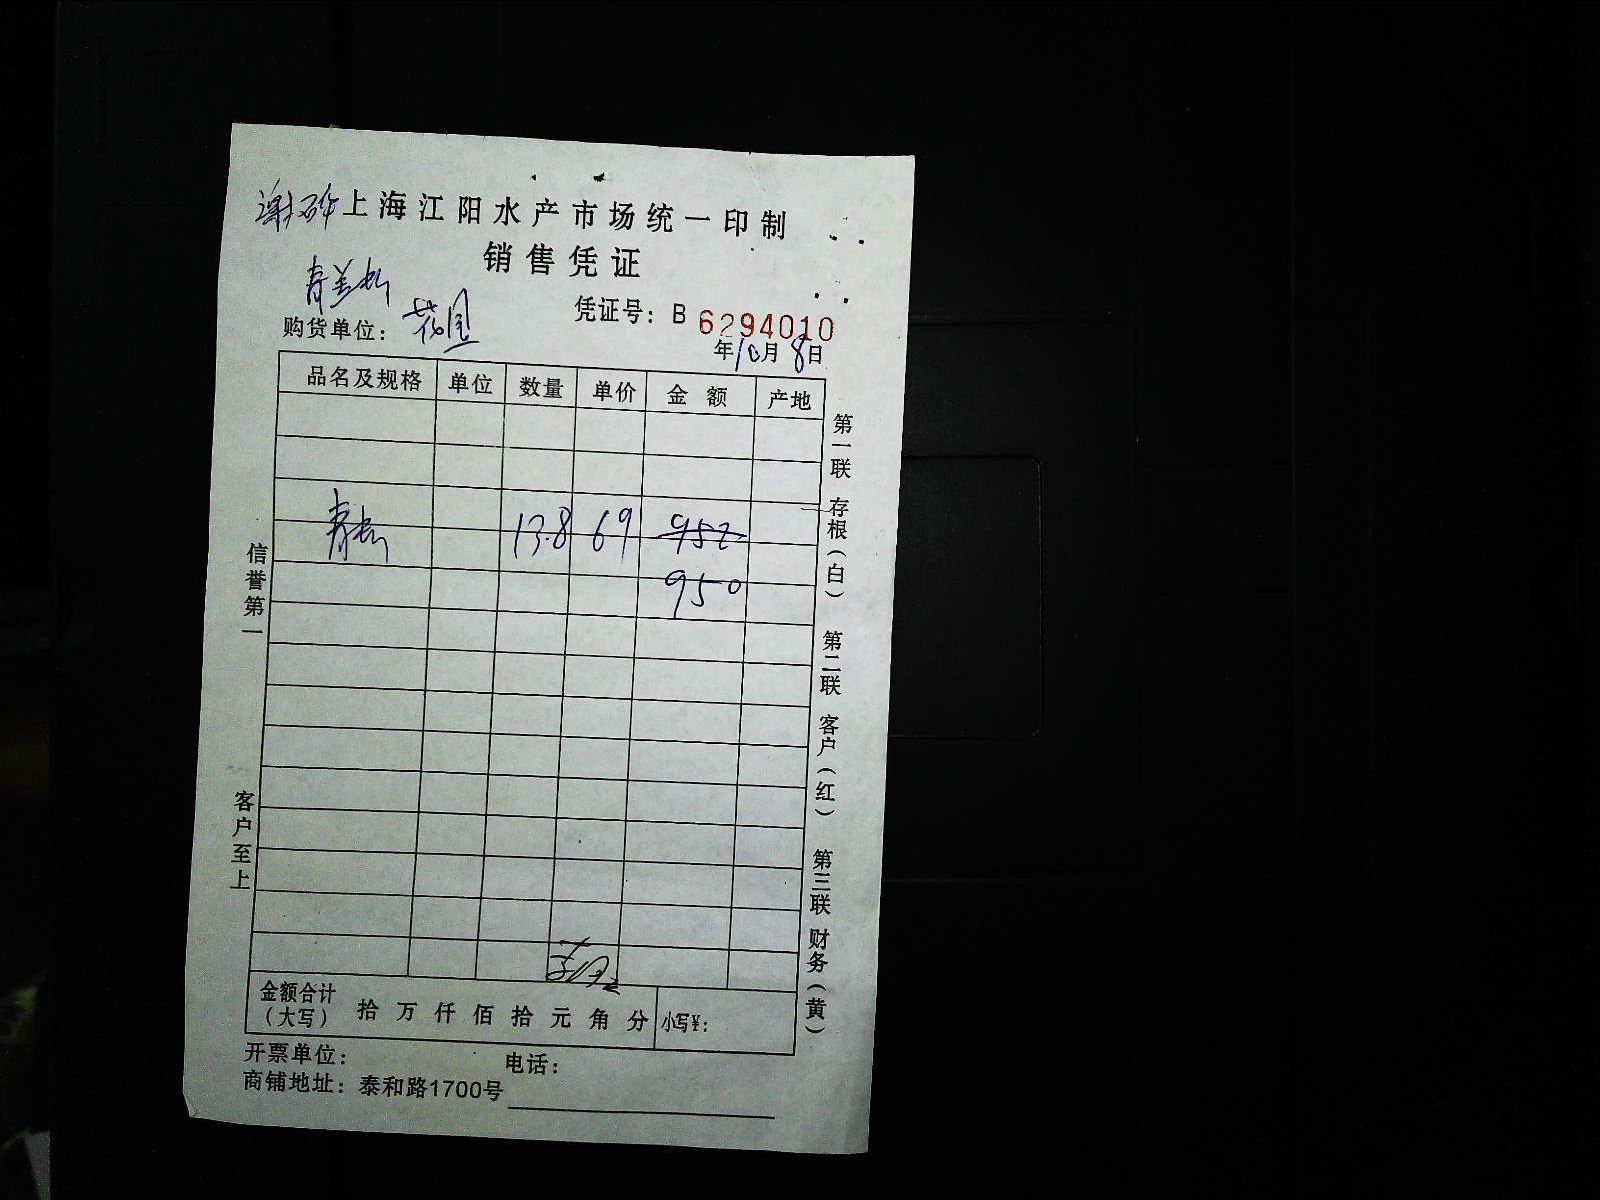 上海江阳水产市场统一印制
销售凭证
凭证号：B 6294010
购货单位：花园
年10月8日
品名及规格 单位 数量 单价 金额 产地
13.8 69 952
950
金额合计（大写） 拾 万 仟 佰 拾 元 角 分 小写¥：
开票单位： 电话：
商铺地址：泰和路1700号
信誉第一
客户至上
第一联 存根（白）
第二联 客户（红）
第三联 财务（黄）